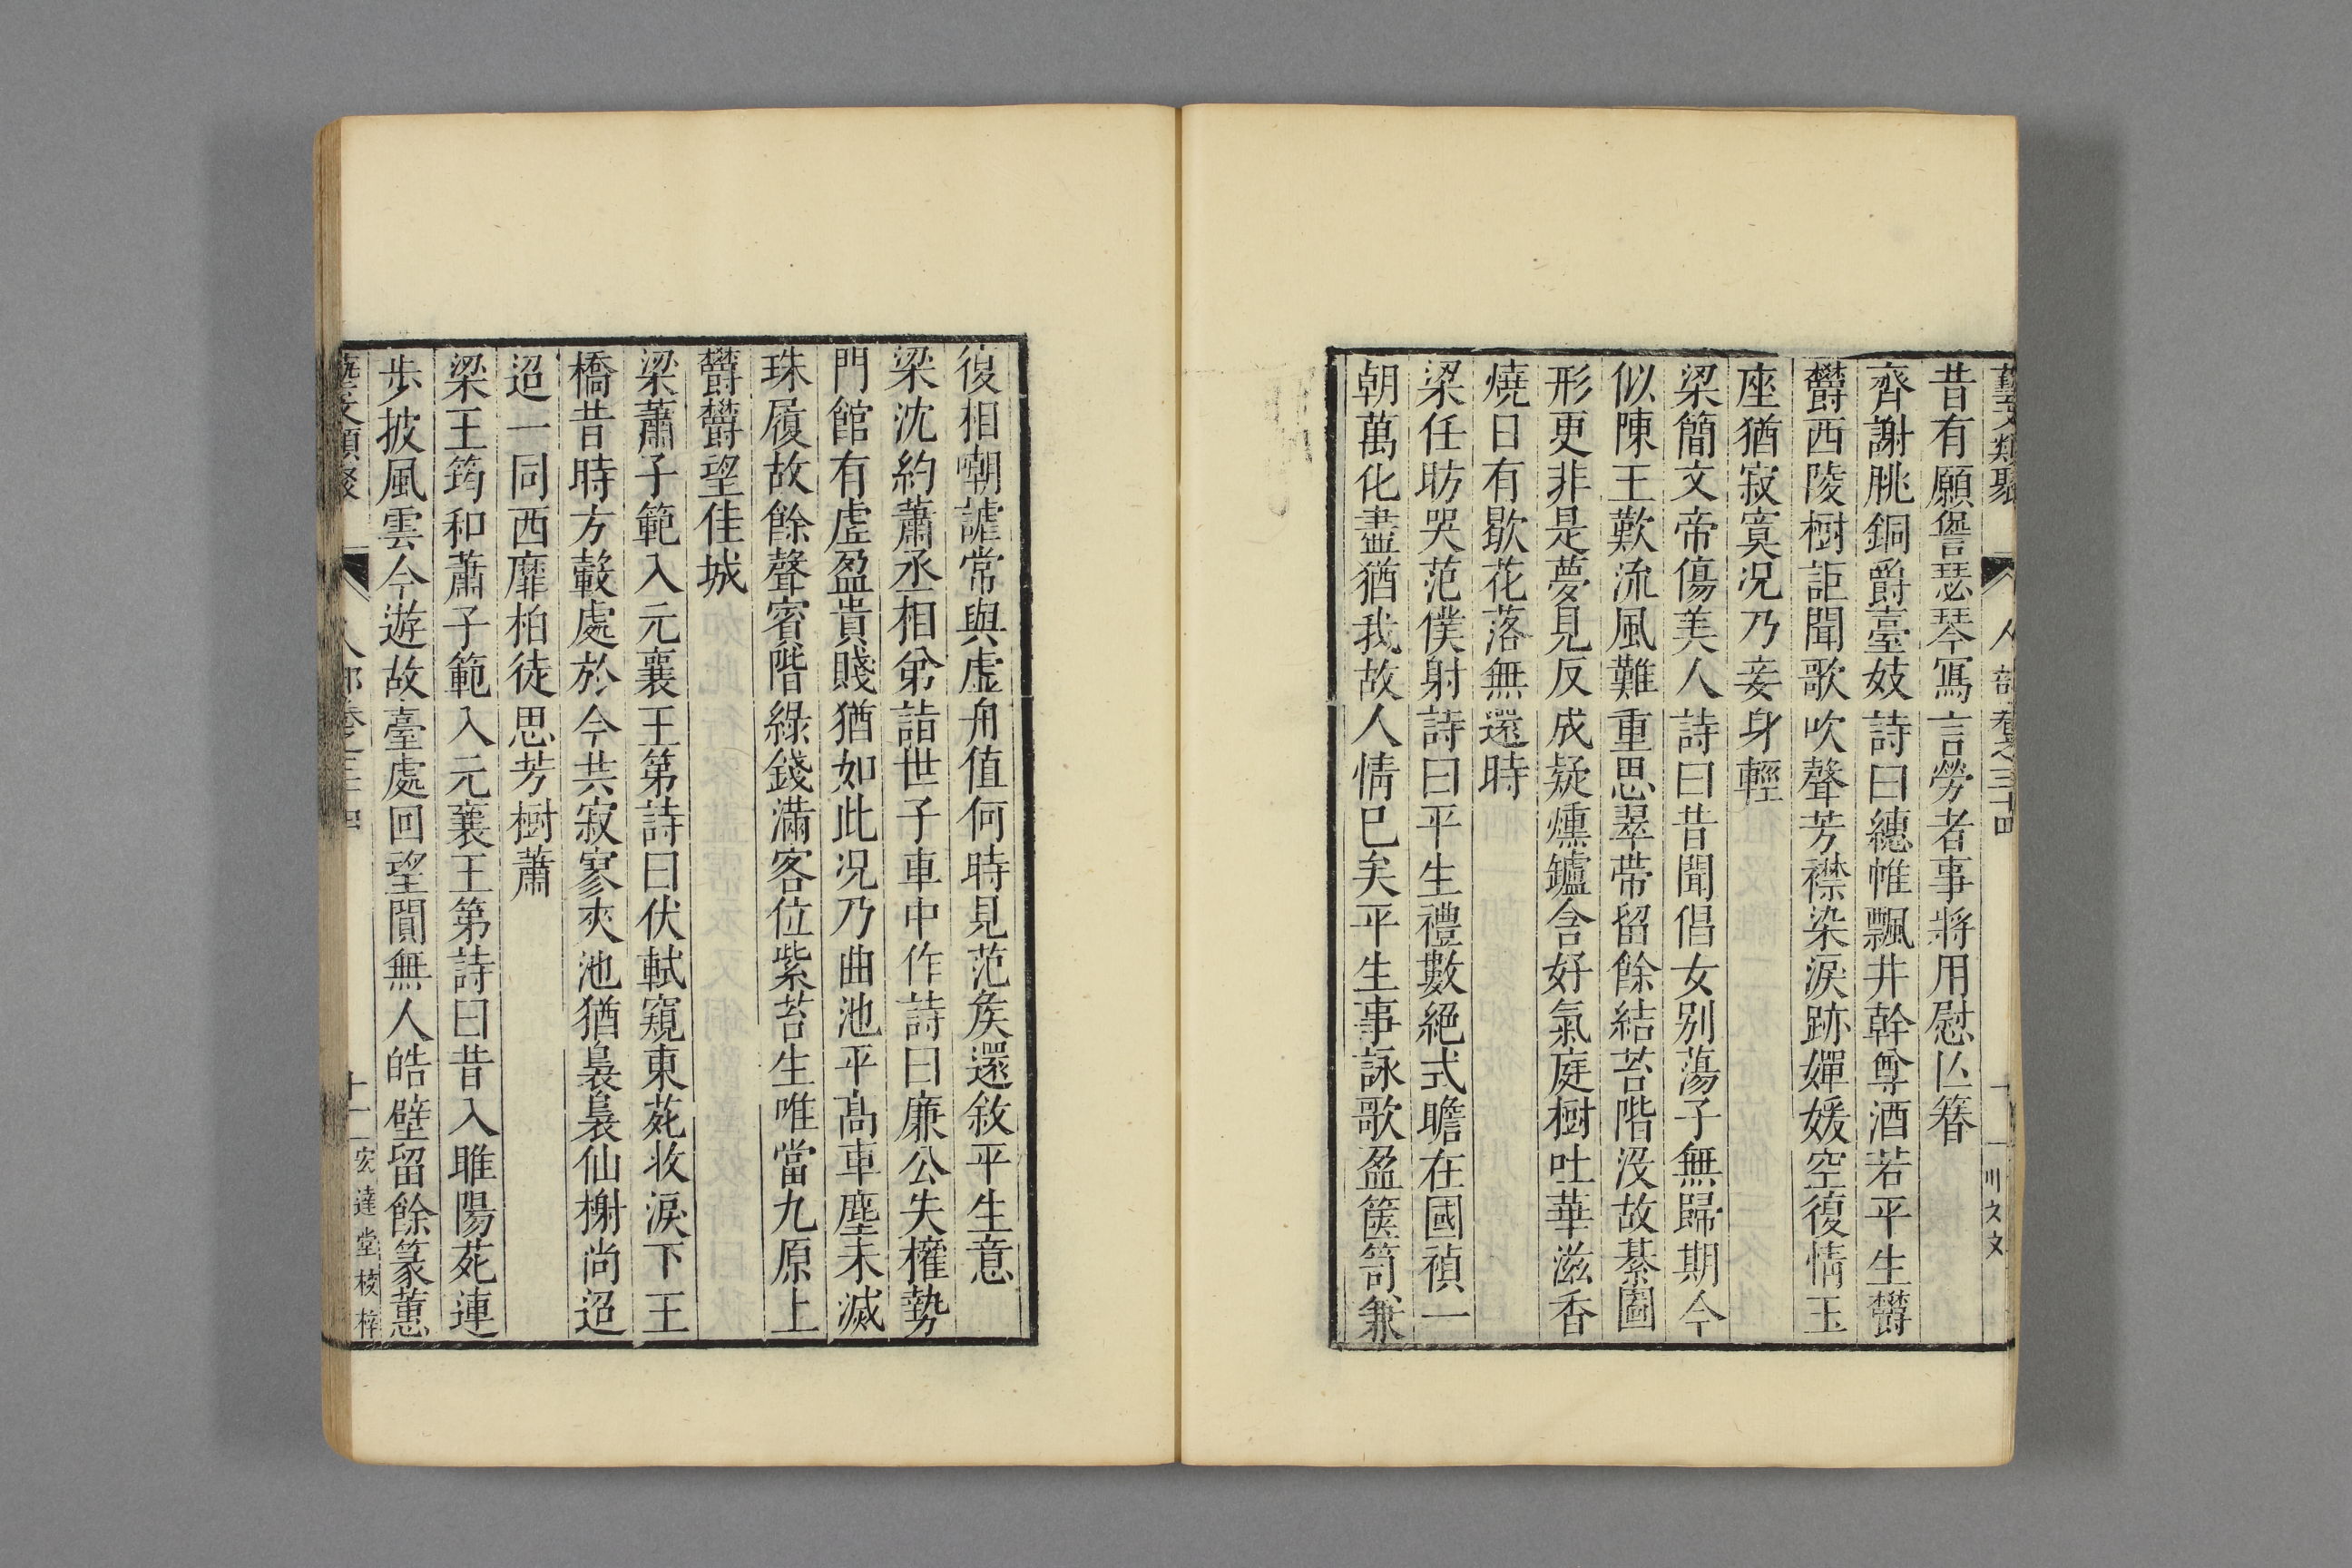 昔有願儻瑟琴冩言勞者事將用慰亾簪
齊謝朓銅爵臺妓詩曰繐帷飄井幹尊酒若平生欝
欝西陵樹詎聞歌吹聲芳襟染淚跡嬋媛空復情玉
座猶寂寞况乃妾身輕
梁簡文帝傷美人詩曰昔聞倡女别蕩子無歸期今
似陳王歎流風難重思翠帶留餘結苔階沒故綦圖
形更非是夢見反成疑燻鑪含好氣庭樹吐華滋香
燒日有歇花落無還時
梁任昉哭范僕射詩曰平生禮數絕式瞻在國禎一
朝萬化盡猶我故人情巳矣平生事詠歌盈篋笥兼
復相嘲謔常與虛舟值何時見范矦還敘平生意
梁沈約蕭丞相第詣世子車中作詩曰廉公失權勢
門館有虛盈貴賤猶如此况乃曲池平髙車塵未滅
珠履故餘聲賔階綠錢滿客位紫苔生唯當九原上
欝欝望佳城
梁蕭子範入元襄王第詩曰伏軾窺東苑收淚下王
橋昔時方轂處於今共寂寥夾池猶裊裊仙榭尚迢
迢一同西靡柏徒思芳樹蕭
梁王筠和蕭子範入元襄王第詩曰昔入睢陽苑連
步披風雲今遊故臺處回望閴無人皓壁留餘篆蕙
宏達堂校梓